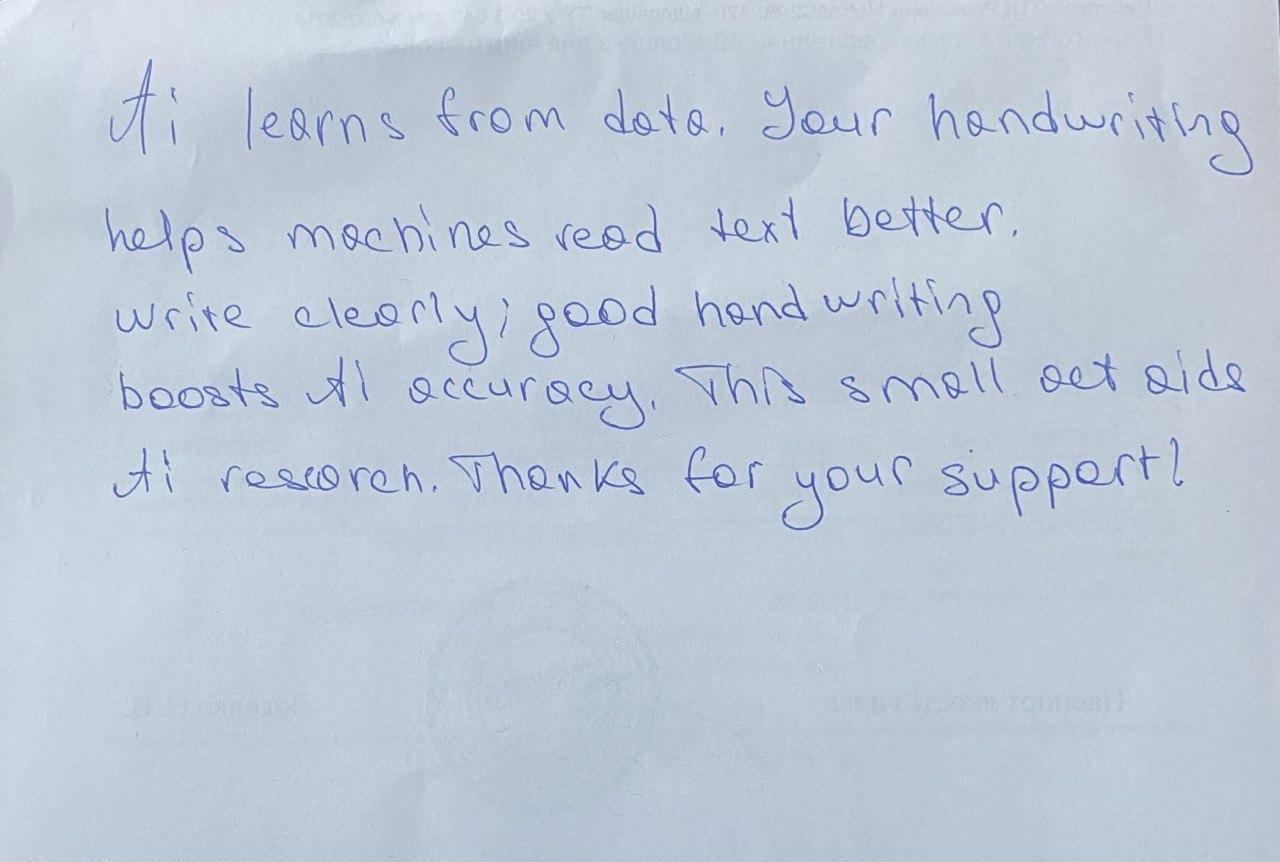 Ai learns from data. Your handwriting
helps machines read text better.
Write clearly; good handwriting
boosts AI accuracy. This small act aids
Ai research. Thanks for your support!